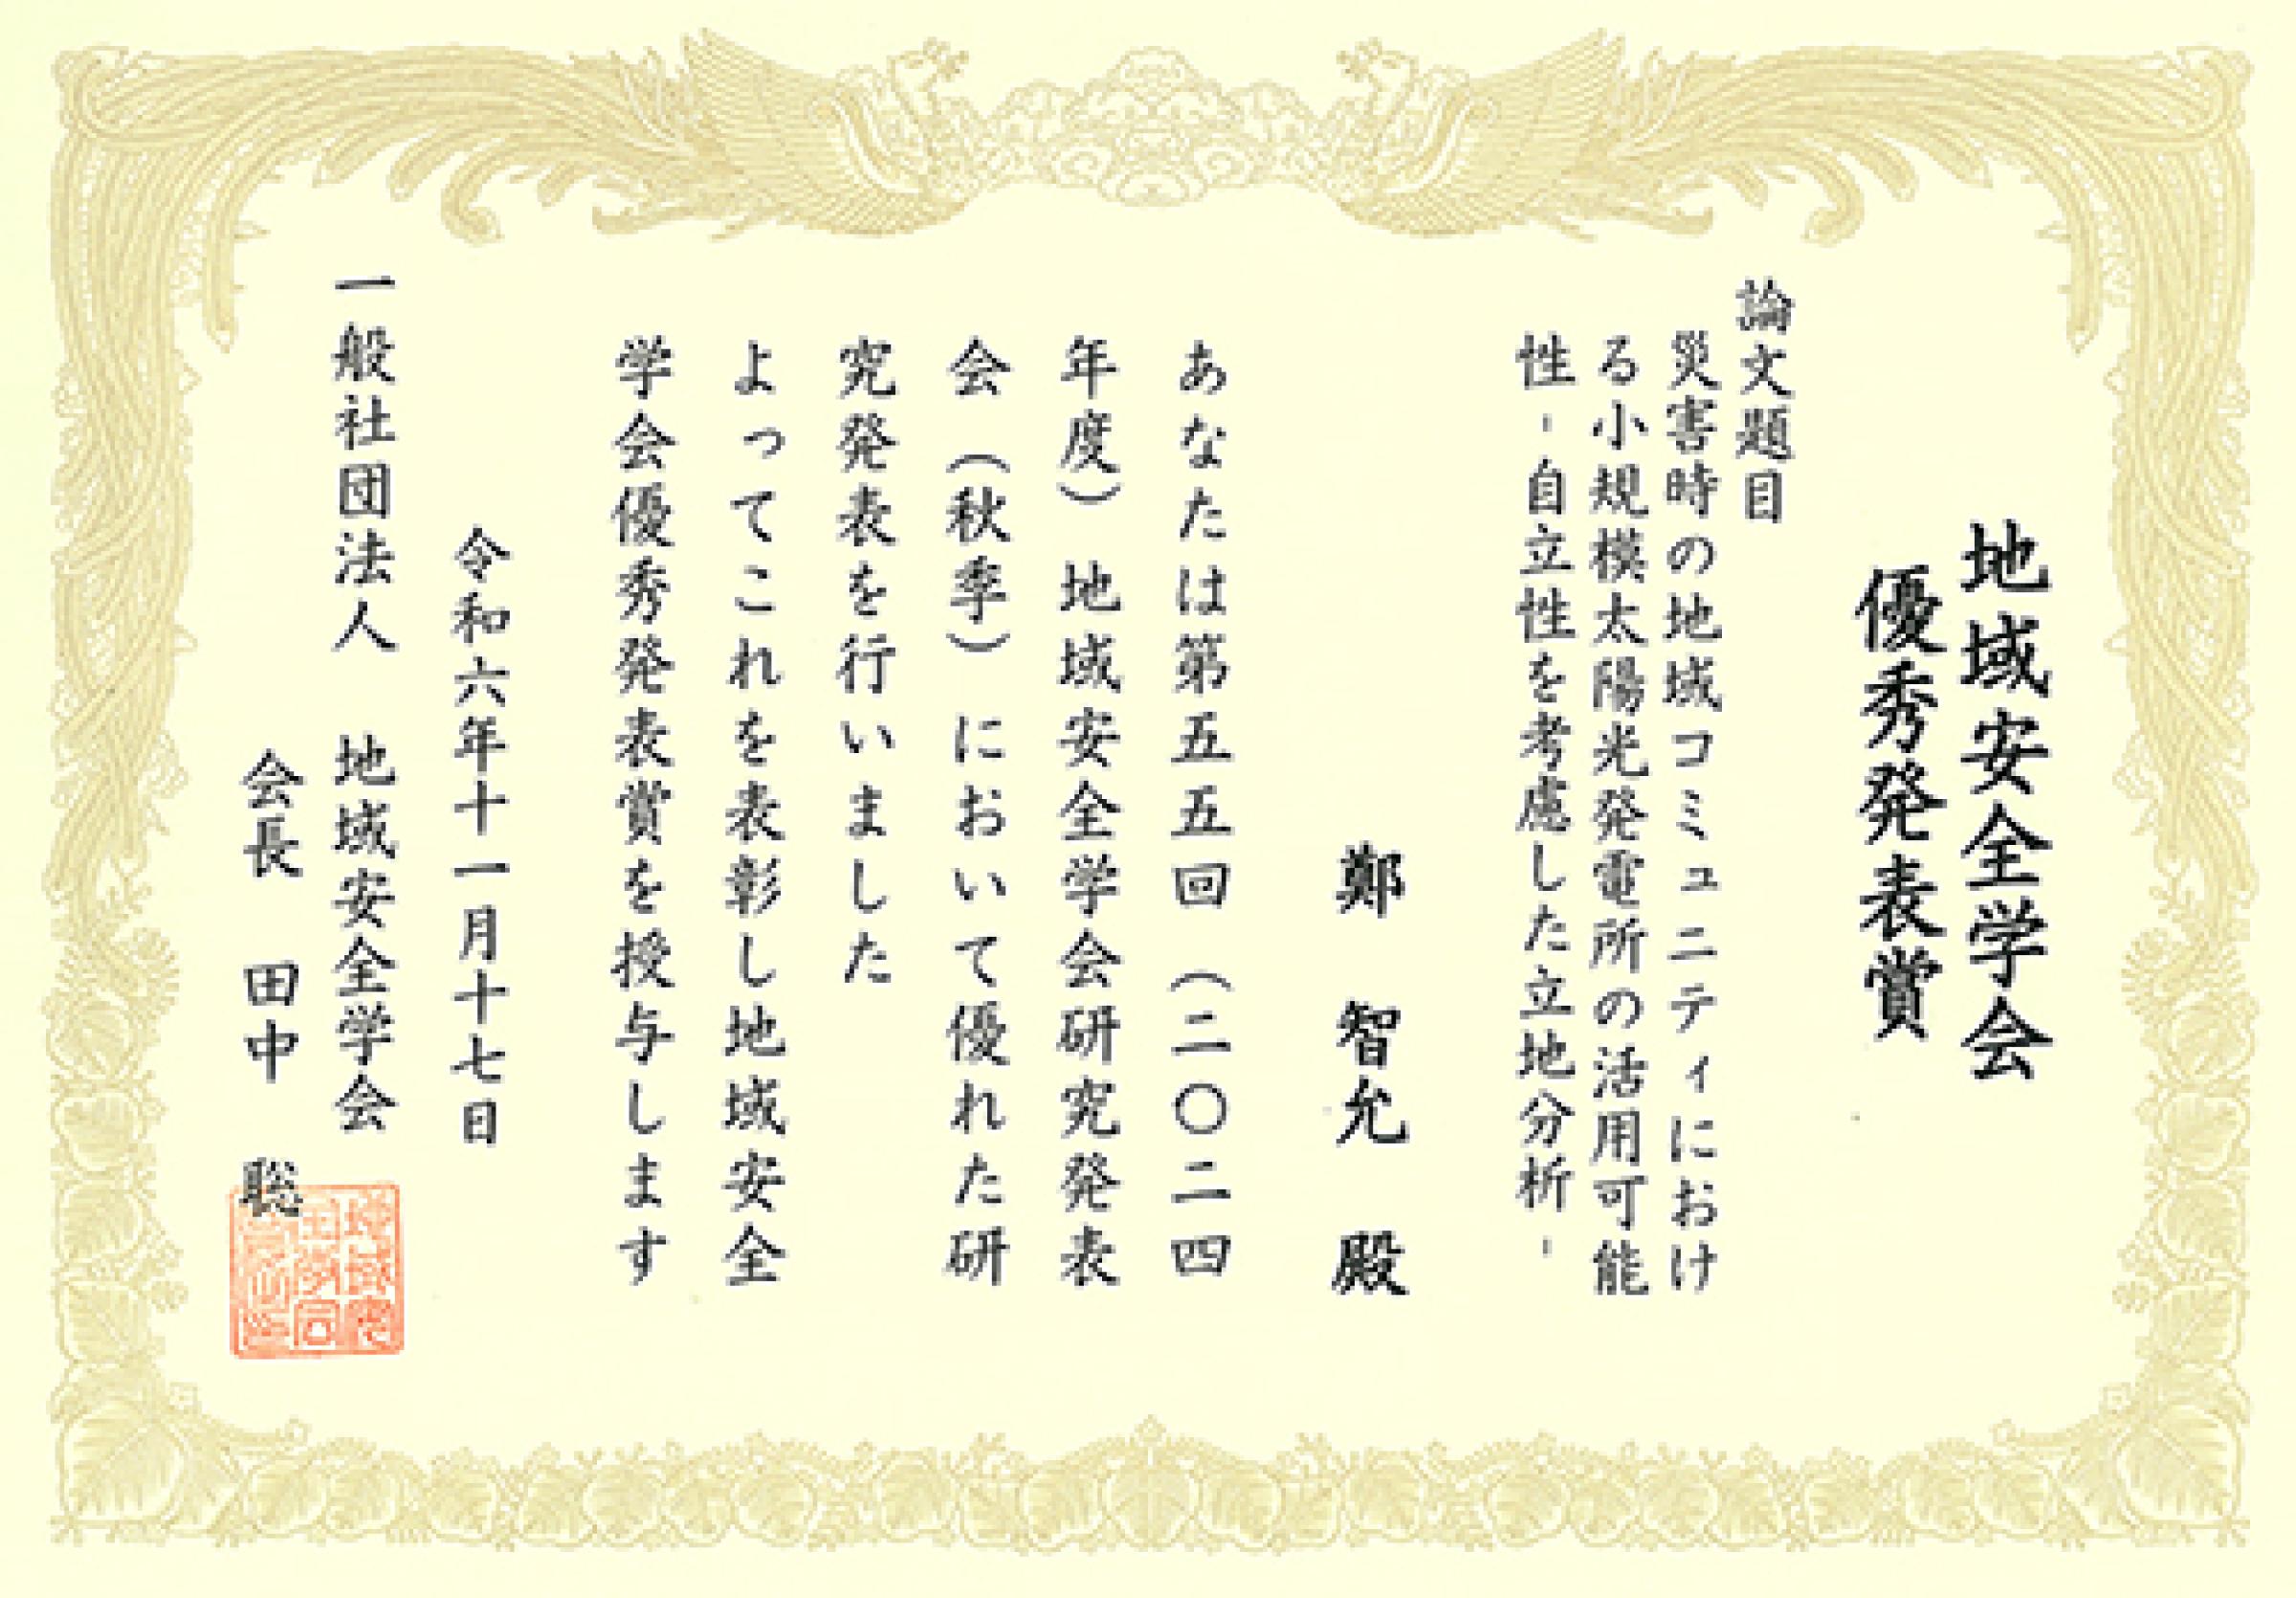 地域安全学会
優秀発表賞
論文題目
災害時の地域コミュニティにおけ
る小規模太陽光発電所の活用可能
性-自立性を考慮した立地分析-
鄭 智允 殿
あなたは第五五回（二〇二四
年度）地域安全学会研究発表
会（秋季）において優れた研
究発表を行いました
よってこれを表彰し地域安全
学会優秀発表賞を授与します
令和六年十一月十七日
一般社団法人 地域安全学会
会長 田中 聡